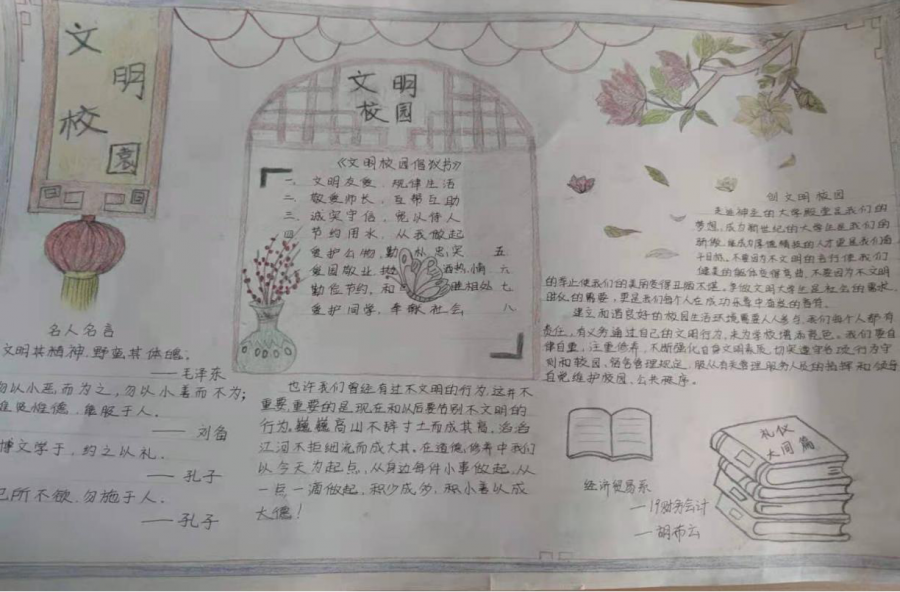 文
明
校
園
名人名言
文明其精神,野蛮其体魄。
——毛泽东
勿以小恶而为之,勿以小善而不为;
惟贤惟德,能服于人。
——刘备
博文学于,约之以礼。
——孔子
己所不欲,勿施于人。
——孔子
文明
校园
《文明校园倡议书》
一、文明友爱、规律生活
二、敬爱师长、互帮互助
三、诚实守信、宽以待人
四、节约用水、从我做起
爱护公物、勤 朴忠实 五
爱国敬业、热情 六
勤俭节约、和睦相处 七
爱护同学、奉献社会 八
也许我们曾还有过不文明的行为,这并不
重要,重要的是现在和以后要告别不文明的
行为,巍巍高山不辞寸土而成其高,滔滔
江河不拒细流而成大其。在道德修养中我们
以今天为起点,从身边每件小事做起,从
一言一滴做起,积少成多,积小善以成
大德!
创文明校园
走进神圣的大学殿堂是我们的
梦想,成为新世纪的大学生是我们的
骄傲,
平目标,不要因为不文明的言行使我们
健美的躯体变得弯曲,不要因为不文明
的举止使我们的美丽变得丑陋不堪。争做文明大学生是社会的需求,
进化的需要,更是我们每个人在成功乐章中奋发的音符。
建立和谐良好的校园生活环境需要人人参与,我们每个人都有
责任,有义务通过自己的文明行为,来为学校增添着色。我们要自
律自重,注重修养,不断强化自身文明素质,切实遵守各项行为守
则和校园,宿舍管理规定,服从有关管理服务人员的指挥和
自觉维护校园,公共秩序。
礼仪
大同篇
经济贸易系
—19财务会计
—胡布云